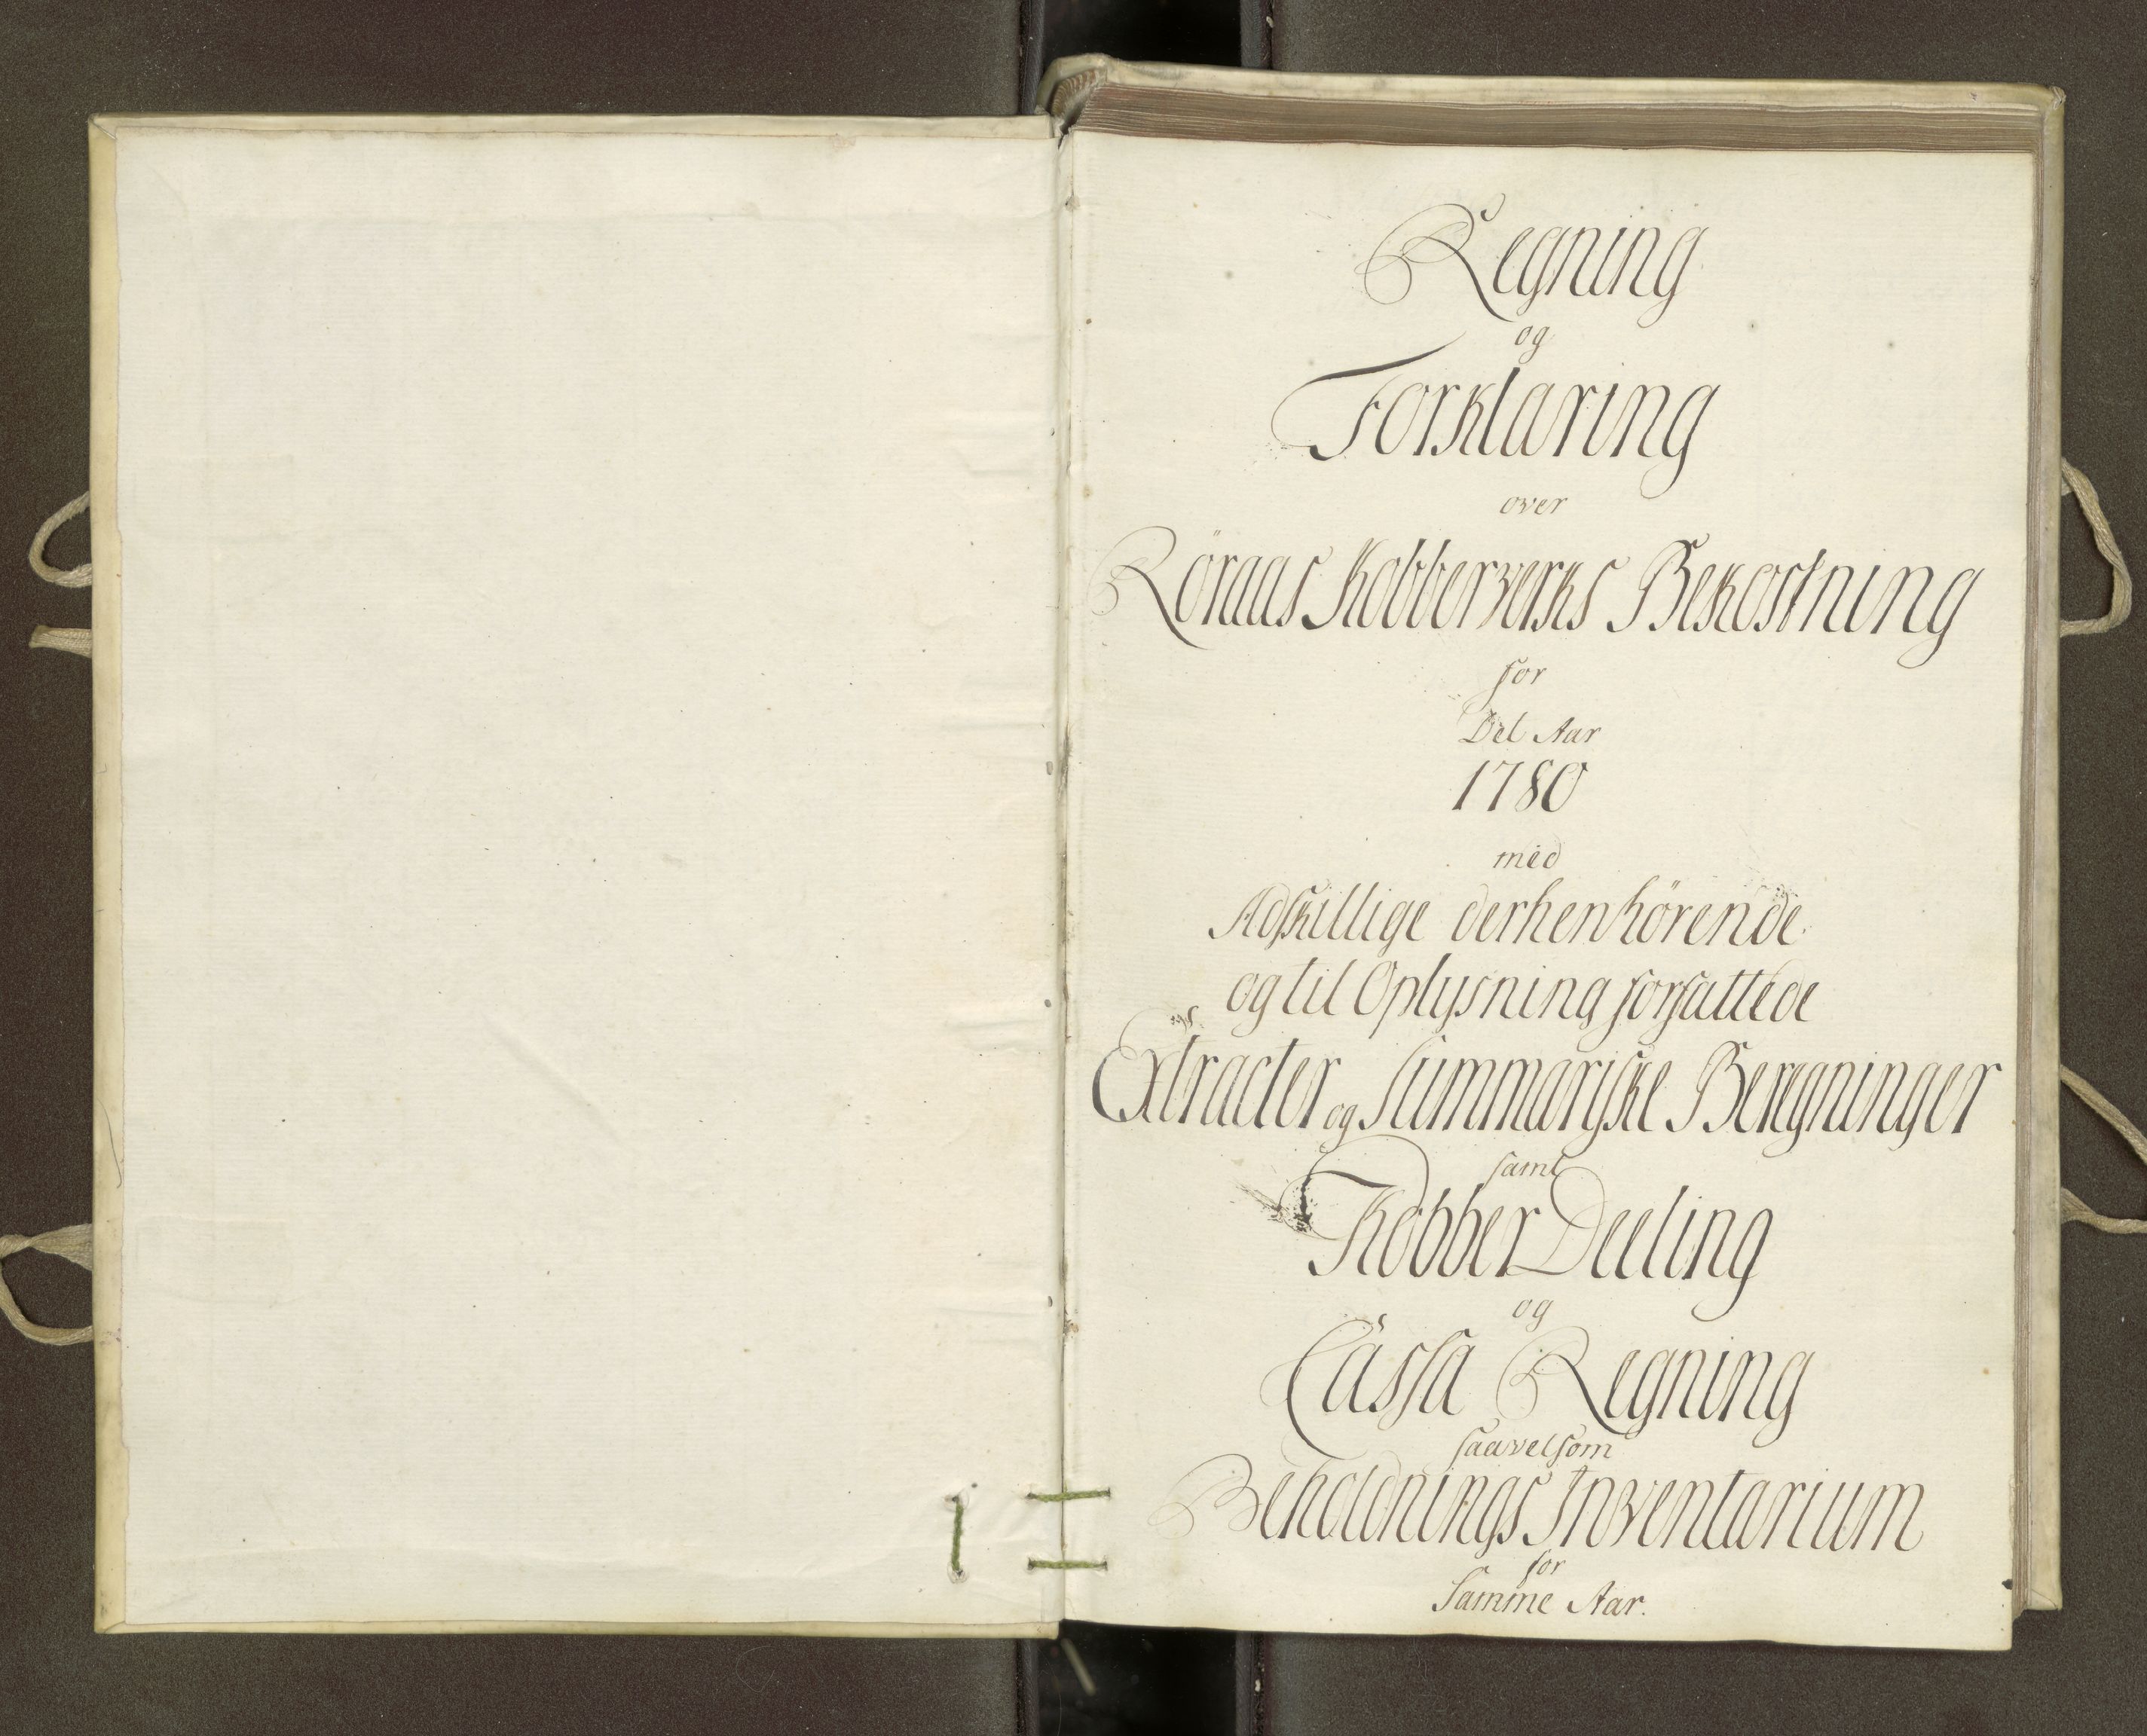 Regning
og
Forklaring
over
Röraas Kobberverks Bekostning
for
Det Aar
1780
med
Adskillige derhenhörende
og til Oplysning forfattede
Extracter og Summariske Beregninger
samt
Kobber Deeling
og
Cassa Regning
saavelsom
Beholdnings Inventarium
for
Samme Aar.